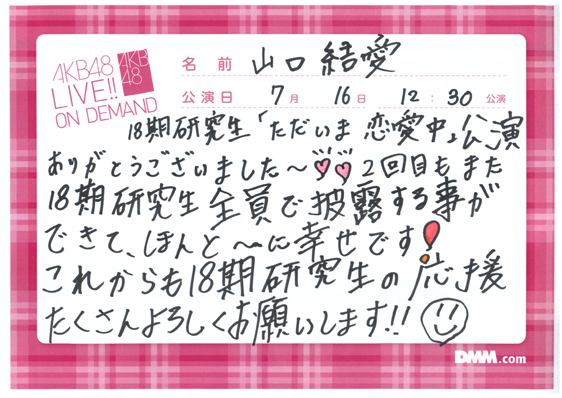 AKB48
LIVE!!
ON DEMAND
AKB
48
名前 山口 結愛
公演日 7月 16日 12:30 公演
18期研究生「ただいま 恋愛中」公演
ありがとうございました〜♡♡ 2回目もまた
18期研究生全員で披露する事が
できて、ほんと〜に幸せです!
これからも18期研究生の応援
たくさんよろしくお願いします!!
DMM.com